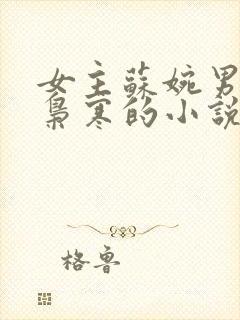 女主蘇婉男
梟寒的小說
格魯